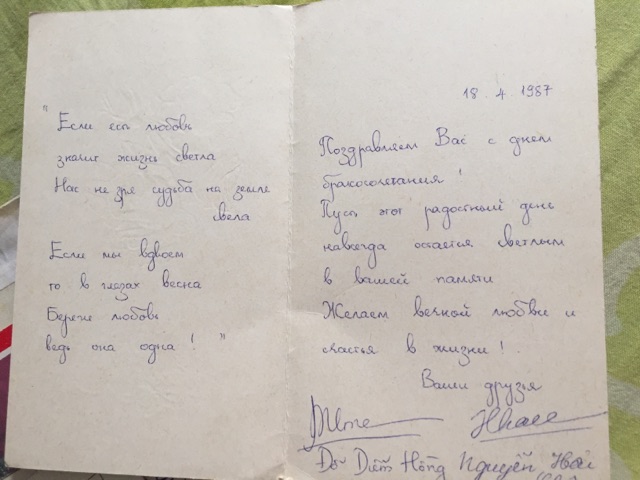 " Если есть любовь
значит жизнь светла
Нас не зря судьба на земле
свела
Если мы вдвоем
то в глазах весна
Береги любовь
ведь она одна ! "
18. 4. 1987
Поздравляем Вас с днем
бракосочетания !
Пусть этот радостный день
навсегда остается светлым
в вашей памяти
Желаем вечной любви и
счастья в жизни !
Ваши друзья
Diễm Hồng Nguyễn